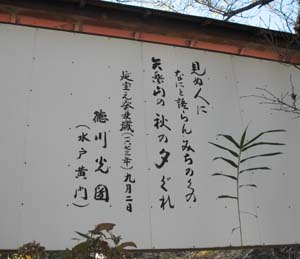 見ぬ人に
なにと語らんみちのくの
矢祭山の秋の夕ぐれ
延宝元癸丑歳(一六七三年)九月二日
徳川光圀
(水戸黄門)